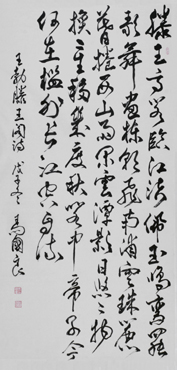 滕王高閣臨江渚佩玉鳴鸞罷
歌舞畫棟朝飛南浦雲珠簾
暮捲西山雨閒雲潭影日悠悠物
換星移幾度秋閣中帝子今
何在檻外長江空自流
王勃滕王閣詩 戊子冬 馬國良